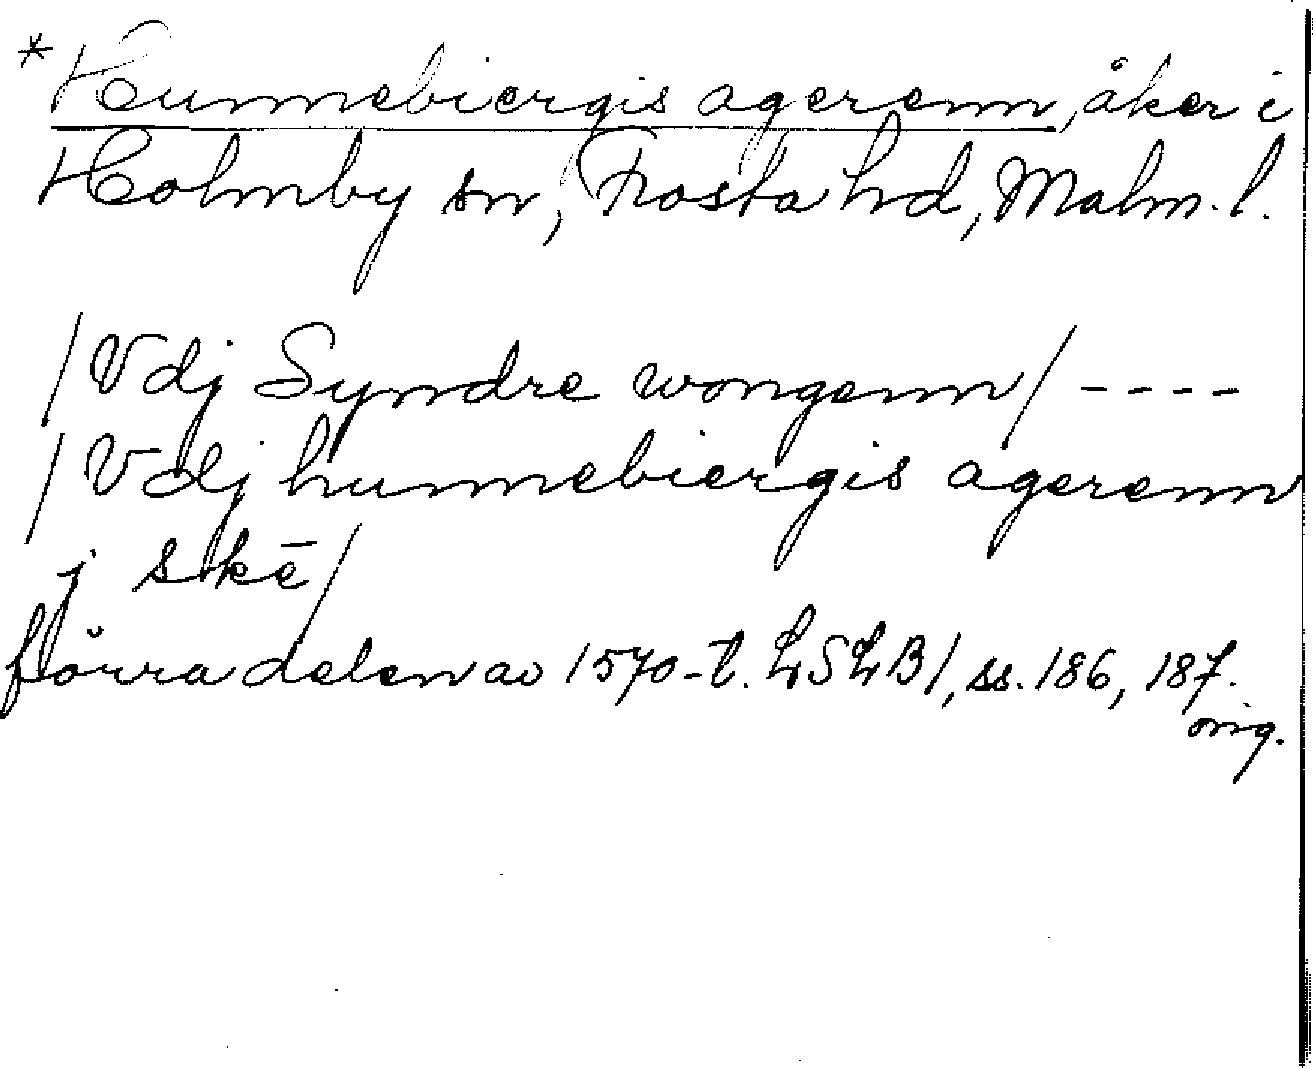 *Hunnebiergis agerenn, åker i
Holmby sn, Frosta hd, Malm. l.
/Vdj Syndre wongenn/ ----
/Vdj hunnebiergis agerenn
j skē/
förra delen av 1570-t. LSLB1, ss. 186, 187.
orig.